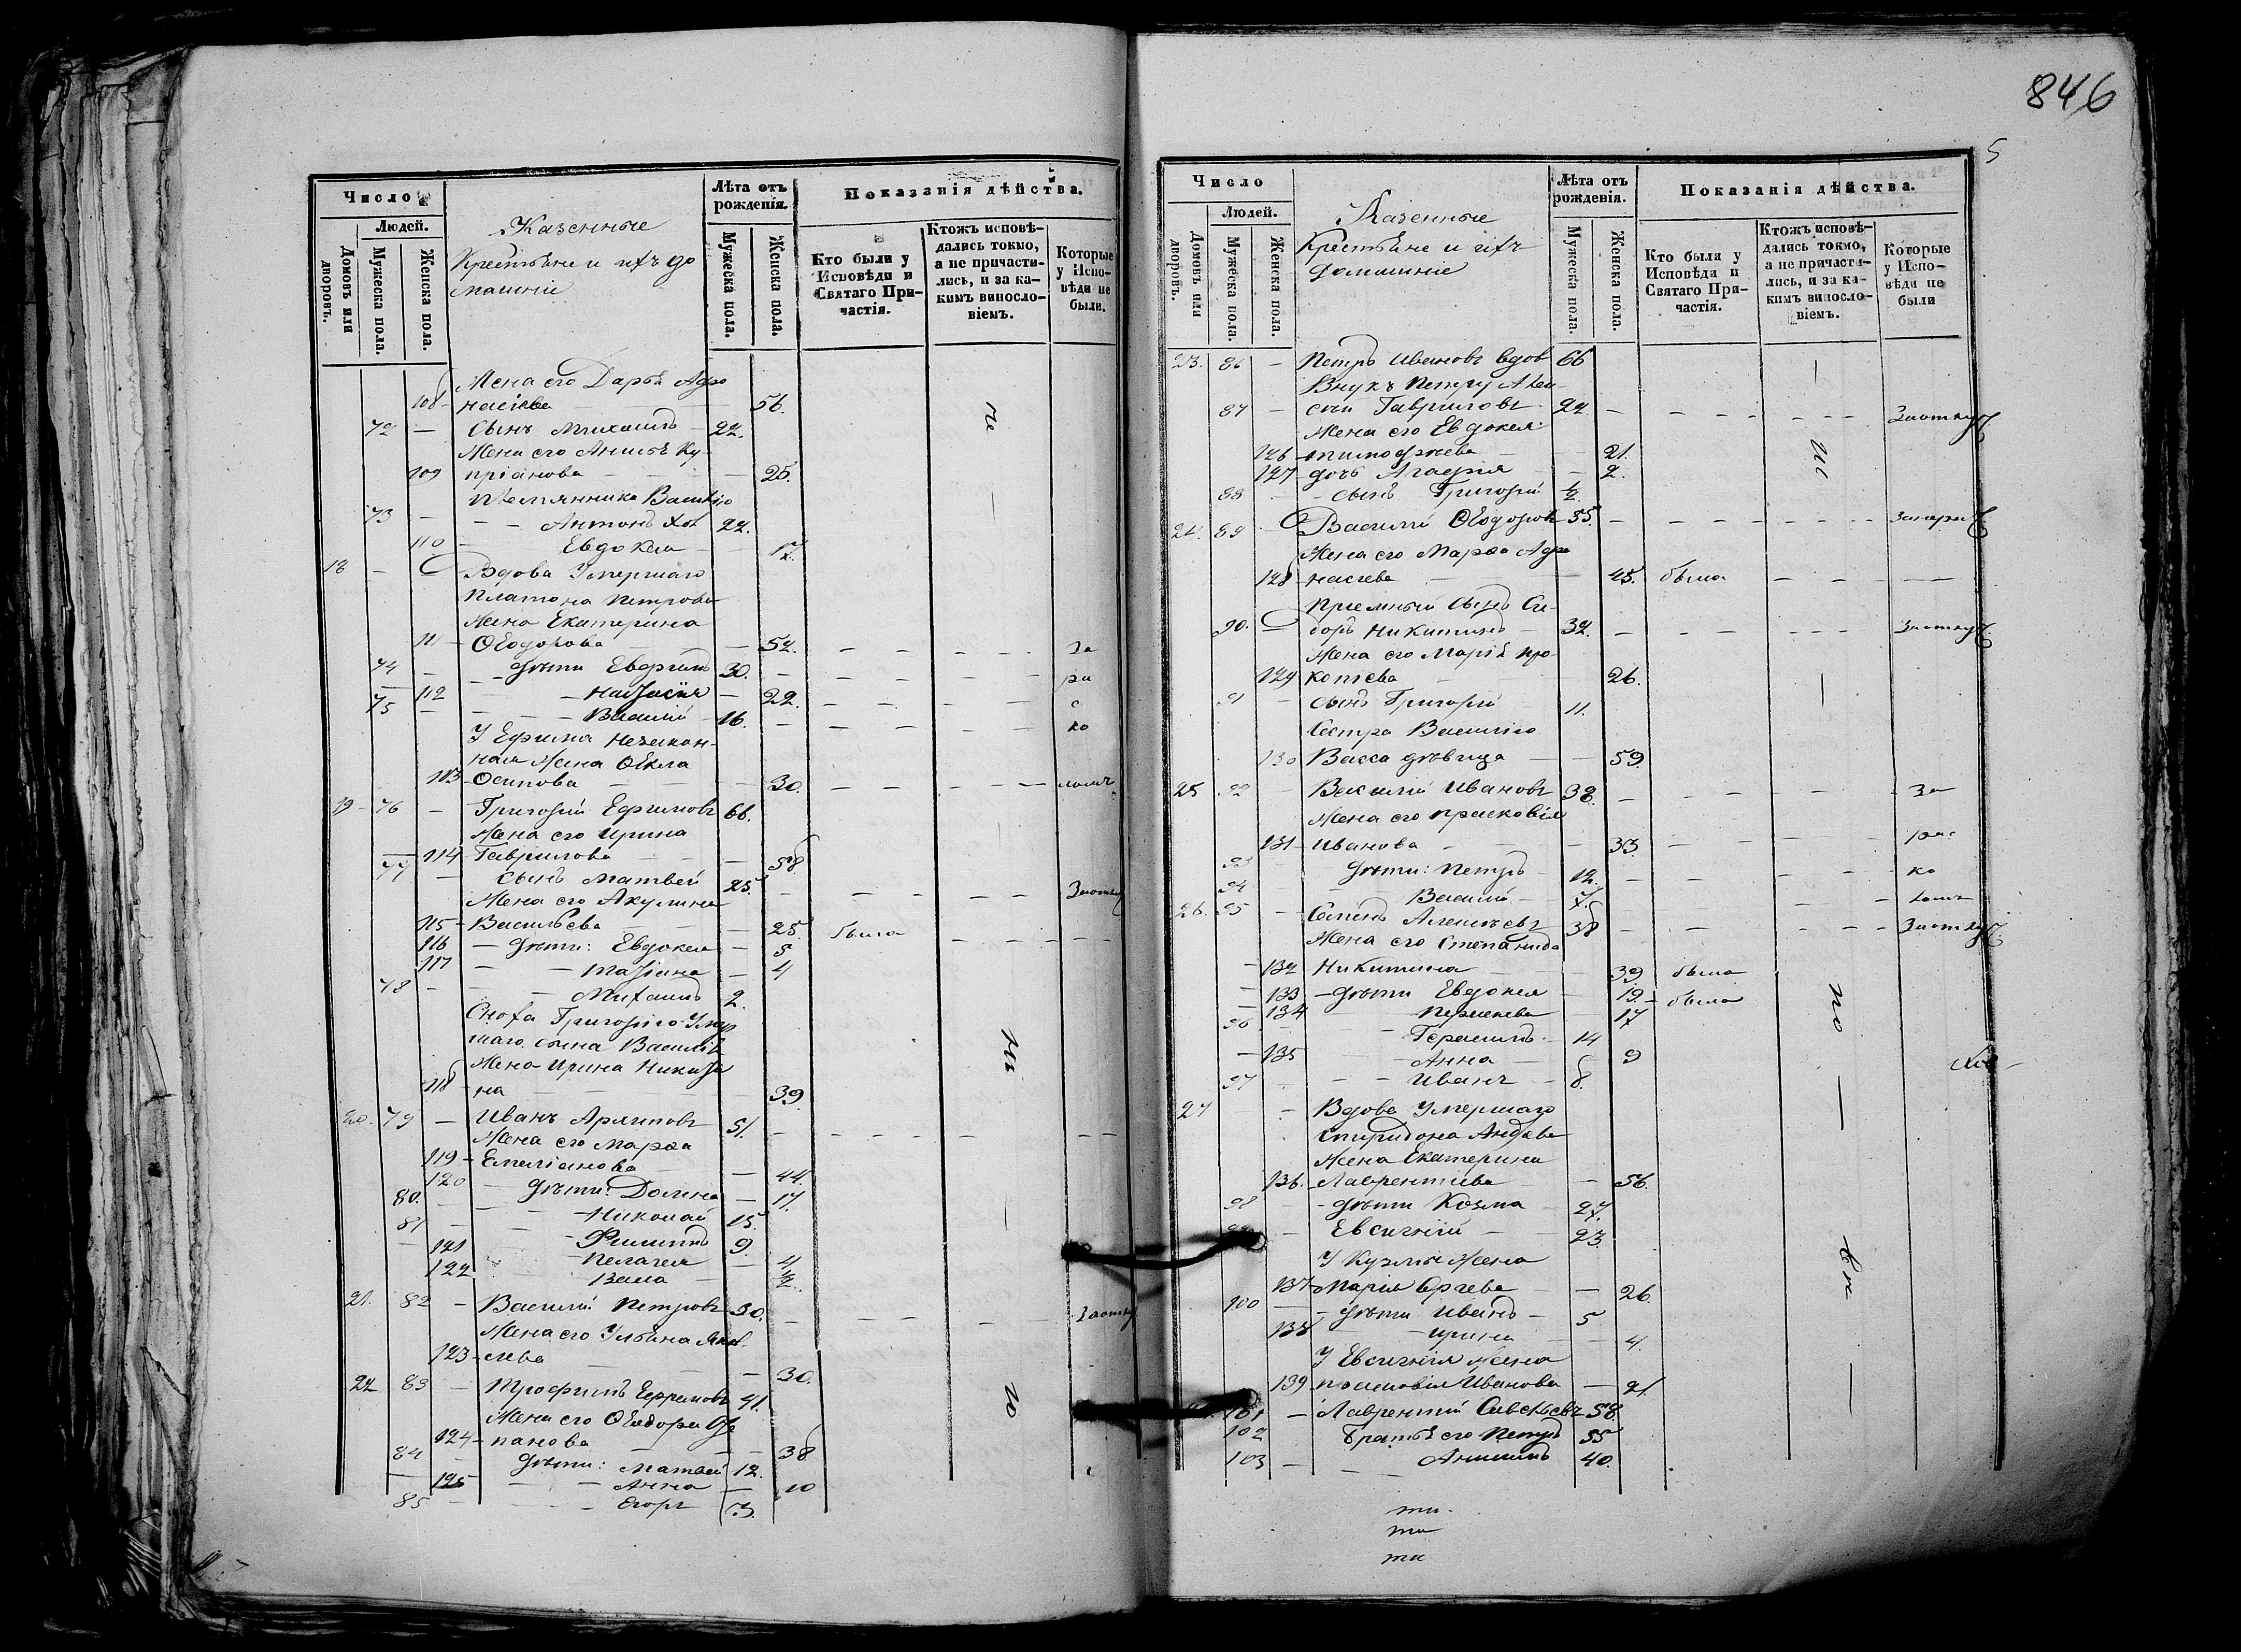 846
5
Число
Лѣта отъ рожденія.
Показанія дѣйства.
Людей.
Домовъ или дворовъ.
Мужеска пола.
Женска пола.
Казенные
Крестьяне и ихъ до
машніе
Мужеска пола.
Женска пола.
Кто были у Исповѣди и Святаго Причастія.
Ктожъ исповѣдались токмо, а не причастились, и за какимъ винословіемъ.
Которые у Исповѣди не были.
Жена его Дарья Афо
108 - насіева 56.
72 — Сынъ Михаилъ 22.
Жена его Анисья Ку
109 пріанова 25.
племянника Василію
73 — Антонъ Хол 22.
110 — Евдокея 17.
18 — Вдова Умершаго
Платона Петрова
Жена Екатерина
111 — Ѳеодорова — 52. За
74 — дѣти Евфимъ 30. ра
112 — Настасія — 22. с
75 — Василій 16. ко
У Ефима незакон-
ная Жена Ѳекла
113 - Осипова — 30. ломъ
19 - 76 — Григорій Ефимовъ 66.
Жена его Ирина
114 Гаврилова — 58
77 — сынъ Матвей 25. Заотлуч
Жена его Акулина
115 - Васильева — 25. была
116 — дѣти: Евдокея — 5
117 — Татіана — 4
78 — Михаилъ 2.
Сноха Григорію Умер
шаго сына Василія
Жена Ирина Никити
118 - на — 39
20. 79 — Иванъ Архиповъ 51.
Жена его Марфа
119 - Емеліанова — 44.
120 — дѣти: Домна — 17.
80. — Николай 15.
81 — Филиппъ 9.
121 — Пелагея — 4
122 — Васса — ½
21. 82 — Василій Петровъ 30. Заотлуч
Жена его Ульяна Яков-
123 - лева — 30.
22 83 — Трофимъ Ефремовъ 41.
Жена его Ѳеодора Сте
124 - панова — 38
84 — дѣти: Матвей 12.
125 — Анна — 10
85 — Егоръ 3.
не
—
ни
—
ю
Число
Лѣта отъ рожденія.
Показанія дѣйства.
Людей.
Домовъ или дворовъ.
Мужеска пола.
Женска пола.
Казенные
Крестьяне и ихъ
домашніе
Мужеска пола.
Женска пола.
Кто были у Исповѣди и Святаго Причастія.
Ктожъ исповѣдались токмо, а не причастились, и за какимъ винословіемъ.
Которые у Исповѣди не были
23. 86 — Петръ Ивановъ вдов 66
Внукъ Петру Алек
87 — сѣй Гавриловъ 22. Заотлуч.
Жена его Евдокея
126 - тимофеева — 21.
127 - дочь Агафія — 2.
88 — сынъ Григорій ½
24. 89 — Василій Ѳеодоровъ 55. Занерач.
Жена его Марфа Афо
128 - насіева — 45. была
Пріемный сынъ Си-
90. — доръ Никитинъ 32. Заотлуч.
Жена его Марія Про-
129 копіева 26.
91 — сынъ Григорій 11.
Сестра Василію
130 Васса дѣвица — 59.
25 92 — Василій Ивановъ 38. За
Жена его Прасковія
131 - Иванова — 33. рас
93 дѣти: Петръ 12. ко
94 Василій 7. ломъ
26. 95 — Семенъ Алексѣевъ 38 Заотлуч.
Жена его Степанида
132 Никитина 39 была
133 - дѣти Евдокея 19. - была
134 Пелагея 17
96 Герасимъ 14
135 Анна 9
97 Иванъ 8.
27 — Вдова Умершаго
Спиридона Андрѣева
Жена Екатерина
136. Лаврентіева — 56.
98 — дѣти Козма 27.
99 — Евсигній 23.
У Кузмы Жена
137 Марія Сргева — 26.
100 — дѣти Иванъ 5
138 Ирина 4.
У Евсигнія жена
139 прасковія Иванова — 21.
101 — Лаврентій Савельевъ 58
102 Братья его Петръ 55
103 — Анисимъ 40.
ни
по
вн
ти.
ти
ти